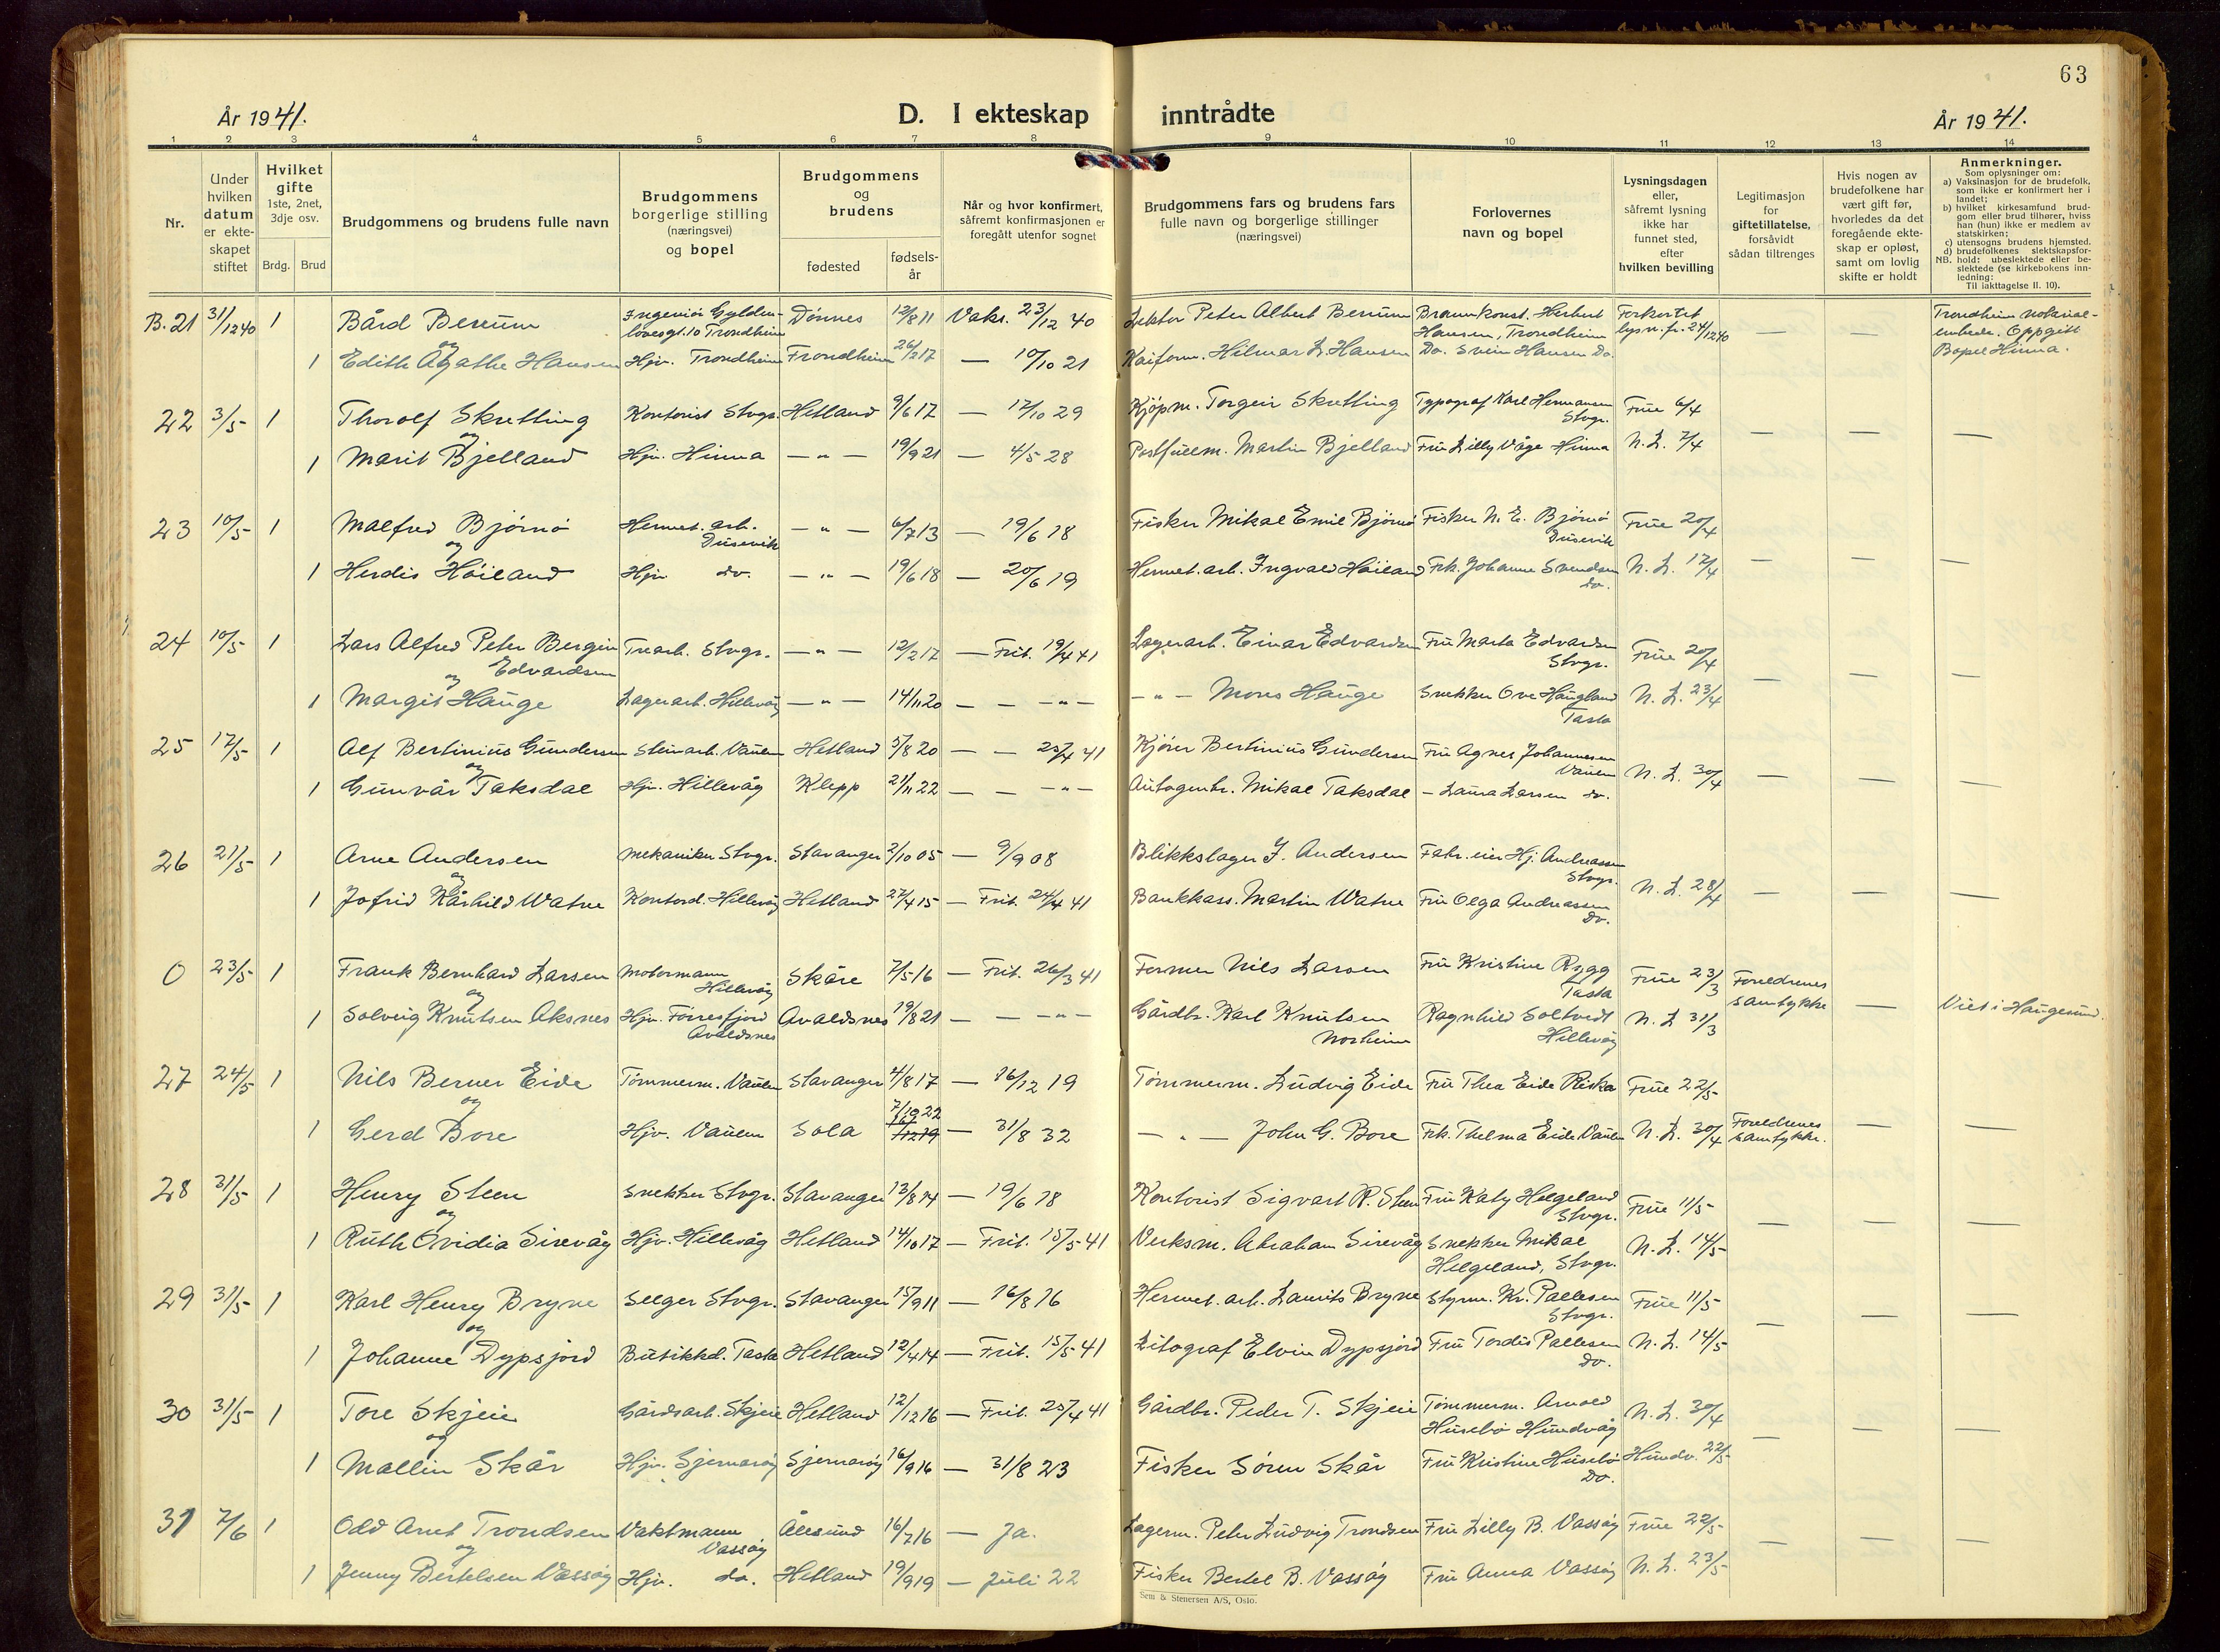 63
År 1941.
D. I ekteskap inntrådte
År 1941.
1 2 3 4 5 6 7 8 9 10 11 12 13 14
Nr.
Under hvilken datum er ekteskapet stiftet
Hvilket gifte 1ste, 2net, 3dje osv.
Brdg. Brud
Brudgommens og brudens fulle navn
Brudgommens borgerlige stilling (næringsvei) og bopel
Brudgommens og brudens
fødested
fødselsår
Når og hvor konfirmert, såfremt konfirmasjonen er foregått utenfor sognet
Brudgommens fars og brudens fars fulle navn og borgerlige stillinger (næringsvei)
Forlovernes navn og bopel
Lysningsdagen eller, såfremt lysning ikke har funnet sted, efter hvilken bevilling
Legitimasjon for giftetillatelse, forsåvidt sådan tiltrenges
Hvis nogen av brudefolkene har vært gift før, hvorledes da det foregående ekteskap er opløst, samt om lovlig skifte er holdt
Anmerkninger.
Som oplysninger om:
a) Vaksinasjon for de brudefolk, som ikke er konfirmert her i landet;
b) hvilket kirkesamfund brudgom eller brud tilhører, hviss han (hun) ikke er medlem av statskirken;
c) utensogns brudens hjemsted.
d) brudefolkenes slektskapsforhold: ubeslektede eller beslektede (se kirkebokens innledning:
NB.
Til iakttagelse II. 10).
B. 21 31/12 40 1 Bård Berum Ingeniör Gyldenlövesgt. 10 Trondheim Dönnes 12/8 11 Vaks. 23/12 40 Lektor Peter Albert Berum Brannkonst. Herbert Hansen, Trondheim Forkortet lysn. fr. 24/12 40 — — Trondheim notarialembede. Oppgitt Bopel Hinna.
og
1 Edith Agathe Hansen Hjv. Trondheim Trondheim 26/2 17 — 10/10 21 Kaiform. Hilmar L. Hansen Do. Svein Hansen Do.
22 3/5 1 Thorolf Skretting Kontorist Stvgr. Hetland 9/6 17 — 12/10 29 Kjöpm. Torgeir Skretting Typograf Karl Hermansen Stvgr. Frue 6/4 — — —
og
1 Marit Bjelland Hjv. Hinna — " — 19/9 21 — 4/5 28 Postfullm. Martin Bjelland Fru Lilly Våge Hinna N. L. 7/4
23 10/5 1 Malfred Björnö Hermet. arb. Dusevik — " — 6/7 13 — 19/6 18 Fisker Mikal Emil Björnö Fisker N. E. Björnö Dusevik Frue 20/4
og
1 Herdis Höiland Hjv do. — " — 19/6 18 — 20/6 19 Hermet. arb. Ingvald Höiland Frk. Johanne Svendsen do. N. L. 17/4 — — —
24 10/5 1 Lars Alfred Peter Bergin Edvardsen Trearb. Stvgr. — " — 12/2 17 — Frit. 19/4 41 Lagerarb. Einar Edvardsen Fru Marta Edvardsen Stvgr. Frue 20/4 — — —
og
1 Margit Hauge Lagerarb. Hillevåg — " — 14/11 20 — — — " — — " — Mons Hauge Snekker Ove Haugland Tasta N. L. 23/4
25 17/5 1 Alf Bertinius Gundersen Steinarb. Vaulen Hetland 5/8 20 — — 25/4 41 Kjörer Bertinius Gundersen Fru Agnes Johannessen Vaulen N. L. 30/4 — — —
og
1 Gunvår Taksdal Hjv. Hillevåg Klepp 21/11 22 — — — " — Autogenbr. Mikal Taksdal — Laura Larsen do.
26 21/5 1 Arne Andersen Mekaniker Stvgr. Stavanger 2/10 05 — 9/9 08 Blikkslager J. Andersen Fabr. eier Hj. Andreassen Stvgr. N. L. 28/4 — — —
og
1 Jofrid Kårhild Watne Kontord. Hillevåg Hetland 27/4 15 — Frit. 24/4 41 Bankkass. Martin Watne Fru Olga Andreassen Do.
0 23/5 1 Frank Bernhard Larsen Motormann Hillevåg Skåre 7/5 16 — Frit. 26/3 41 Former Nils Larsen Fru Kristine Rygg Tasta Frue 23/3 Foreldrenes samtykke — Viet i Haugesund.
og
1 Solveig Knutsen Aksnes Hjv. Förresfjord Avaldsnes Avaldsnes 19/8 21 — — — " — Gårdbr. Karl Knutsen Norheim Ragnhild Soltvedt Hillevåg N. L. 31/3
27 24/5 1 Nils Berner Eide Tömmerm. Vaulen Stavanger 4/8 17 — 16/12 19 Tömmerm. Ludvig Eide Fru Thea Eide Riska Frue 22/5
og
1 Gerd Bore Hjv. Vaulen Sola 7/10 22 — 31/8 32 — " — John G. Bore Frk. Thelma Eide Vaulen N. L. 30/4 Foreldrenes samtykke. — —
28 31/5 1 Henry Steen Snekker Stvgr. Stavanger 13/8 14 — 19/6 18 Kontorist Sigvart R. Steen Fru Katy Helgeland Stvgr. Frue 11/5 — — —
og
1 Ruth Ovidia Sirevåg Hjv. Hillevåg Hetland 14/10 17 — Frit. 15/5 41 Verksm. Abraham Sirevåg Snekker Mikal Helgeland, Stvgr. N. L. 14/5
29 31/5 1 Karl Henry Bryne Selger Stvgr. Stavanger 15/9 11 — 16/8 16 Hermet. arb. Laurits Bryne Styrm. Kr. Pallesen Stvgr. Frue 11/5 — — —
og
1 Johanne Dypsjord Butikkd. Tasta Hetland 12/4 14 — Frit. 15/5 41 Litograf Elvin Dypsjord Fru Tordis Pallesen do. N. L. 14/5
30 31/5 1 Tore Skjeie Gårdsarb. Skjeie Hetland 12/12 16 — Frit. 25/4 41 Gårdbr. Peder T. Skjeie Tömmerm. Arnold Husebö Hundvåg N. L. 30/4 — — —
og
1 Mallin Skår Hjv. Sjernaröy Sjernaröy 16/9 16 — 31/8 23 Fisker Sören Skår Fru Kristine Husebö Do. Hundv. 22/5
31 7/6 1 Odd Arnt Trondsen Vaktmann Vassöy Ålesund 16/7 16 — Ja. Lagerm. Peter Ludvig Trondsen Fru Lilly B. Vassöy Frue 22/5 — — —
og
1 Jenny Bertelsen Vassöy Hjv. do. Hetland 19/9 19 — Juli 22 Fisker Bertel B. Vassöy Fru Anna Vassöy N. L. 23/5
Sem & Stenersen A/S, Oslo.